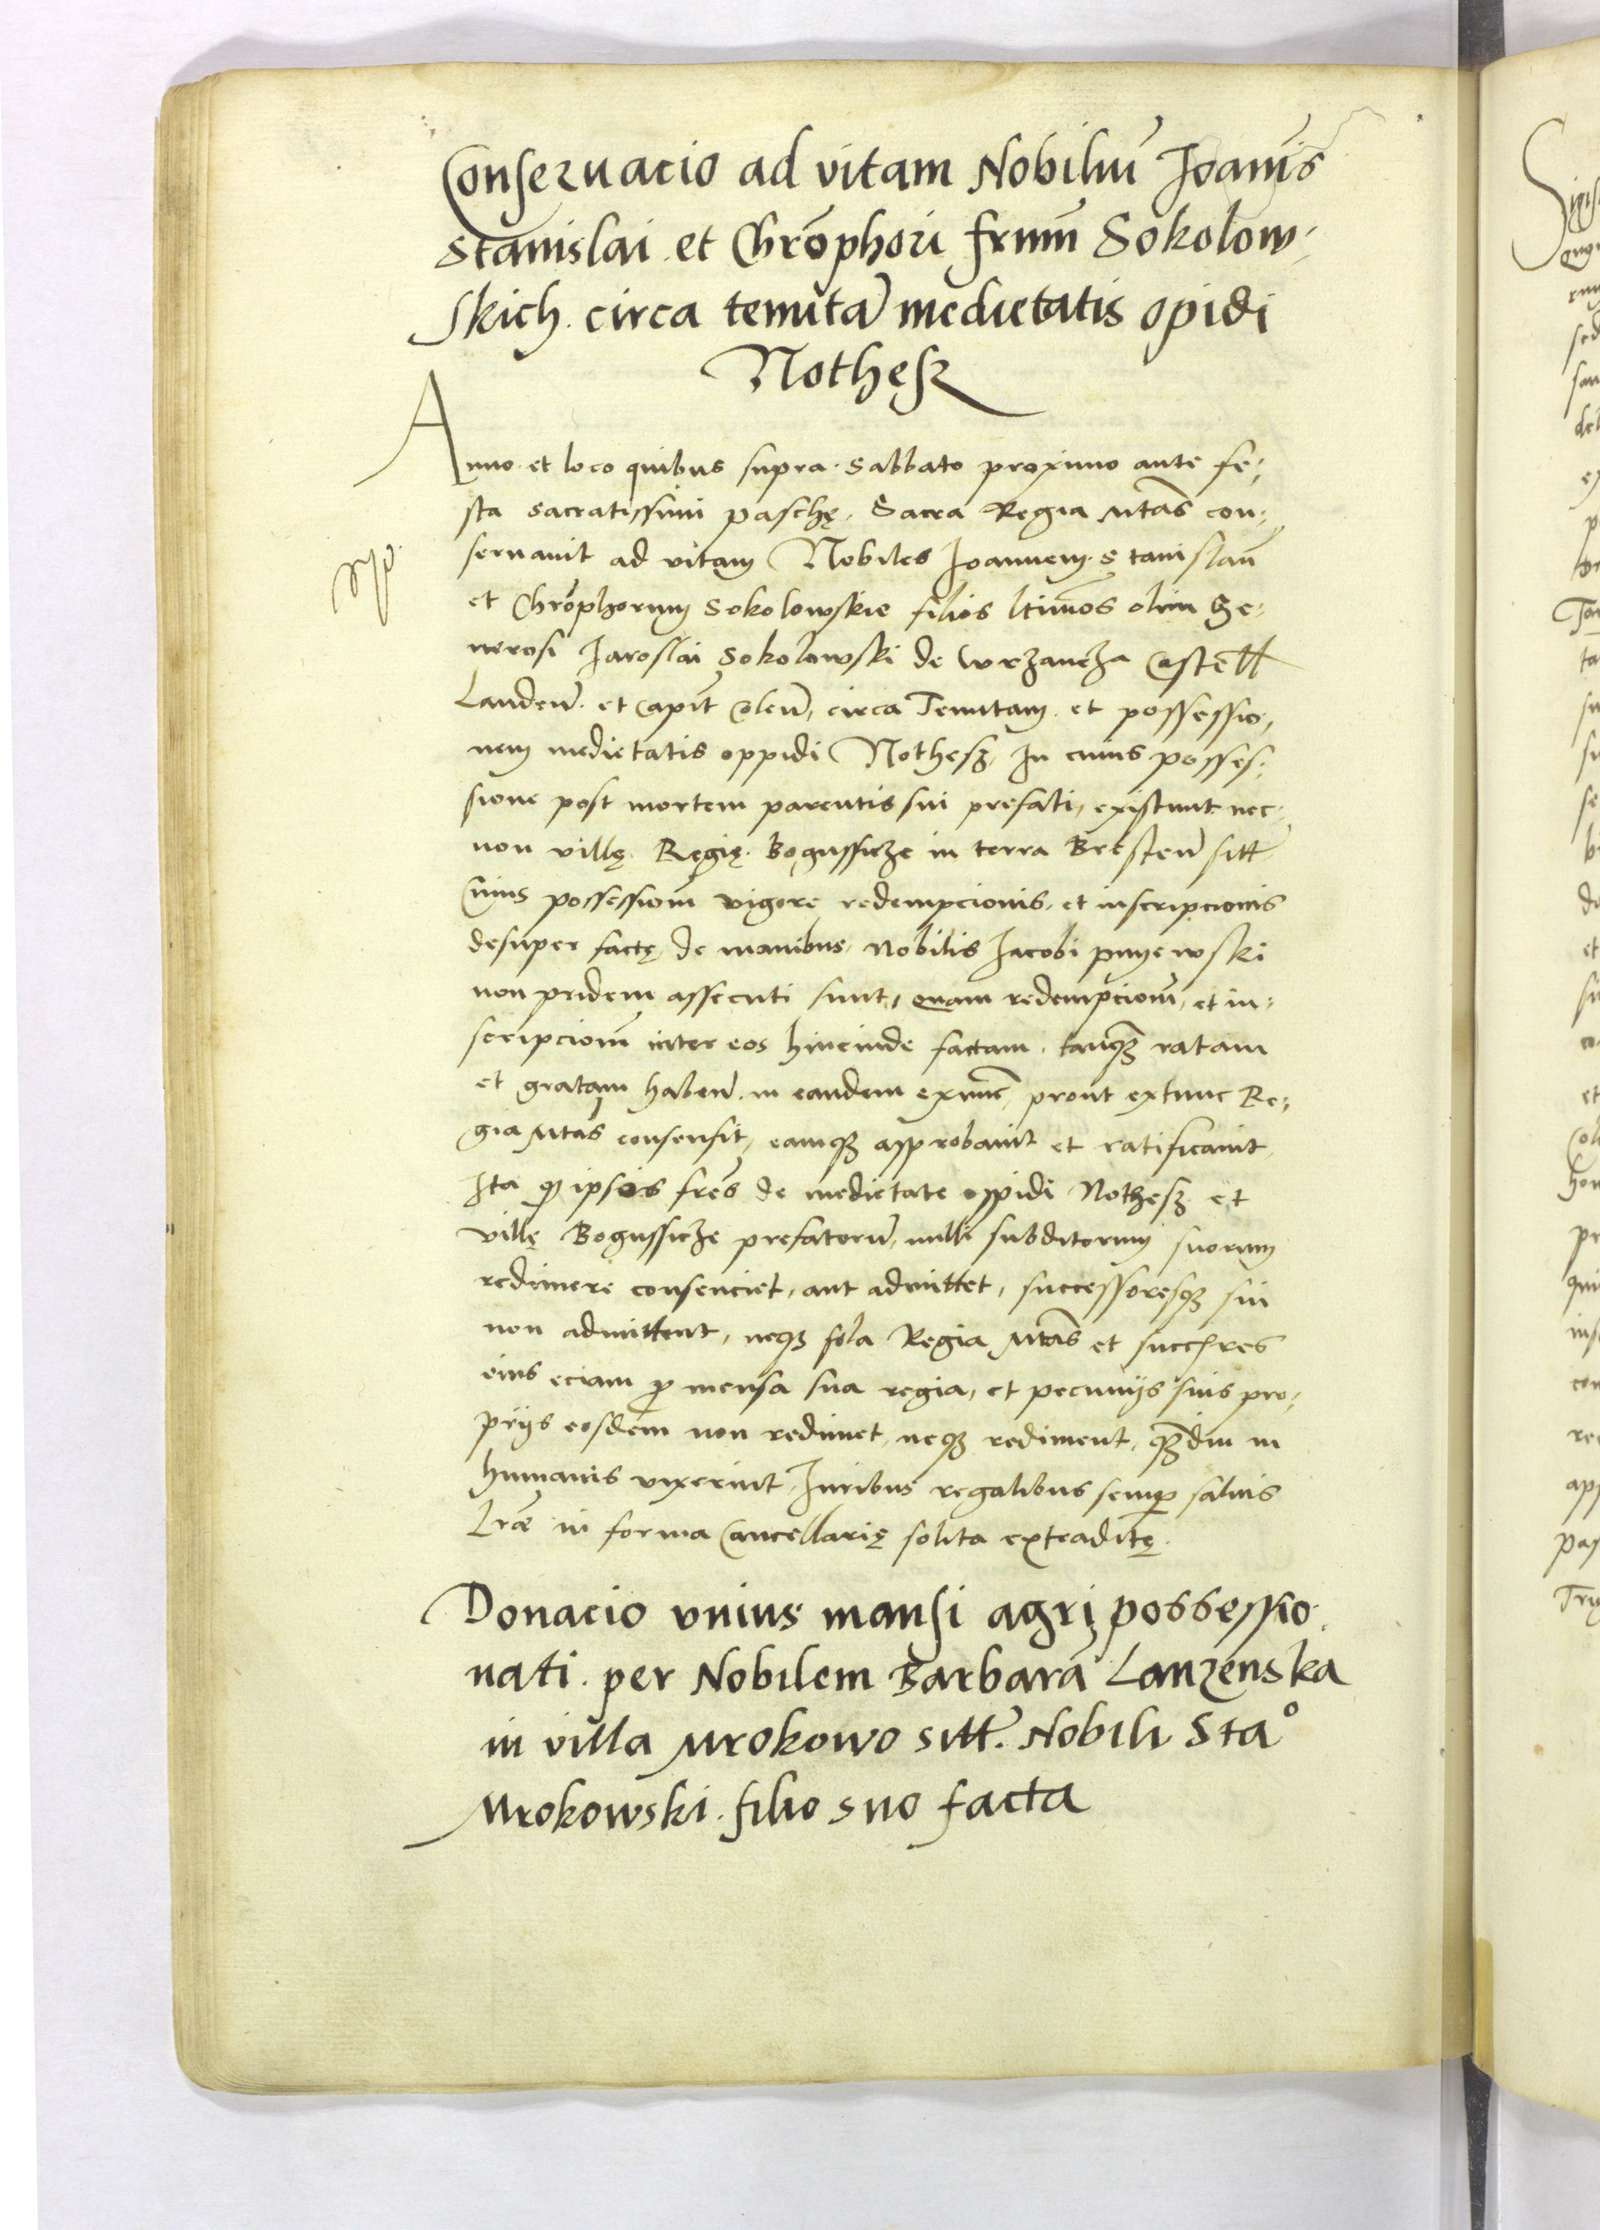 Conseruacio ad vitam Nobiliū Ioānis
Stanislai et Chrōphori frūm Sokolow-
skich circa tenutā medietatis opidi
Nothesz
Anno et loco quibus supra Sabbato proximo ante fe-
sta sacratissimi paschę, Sacra Regia Mtās con-
seruauit ad vitam Nobiles Ioannem Stanislaū
et Chrōphorum Sokolowskie filios ltīmos olim Ge-
nerosi Iaroslai Sokolowski de Wrzancza Castell
Landeñ. et Capit̄ Coleñ, circa Tenutam et possessio-
nem medietatis oppidi Nothesz, In cuius posses-
sione post mortem parentis sui prefati, existunt nec-
non villę Regię Bogussicze in terra Bresteñ sitt
Cuius possessioñ vigore redempcionis, et inscripcionis
desuper factę, de manibus, Nobilis Iacobi pnyewski
non pridem assecuti sunt, quam redempcioñ, et in-
scripcioñ inter eos hincinde factam, tanq̄ ratam
et gratam habeñ. in eandem exnunc̄, prout extunc Re-
gia Mtas consensit, eamq̄ approbauit et ratificauit,
Ita q̄ ipsos frēs de medietate oppidi Nothesz et
villę Bogussicze prefatorū, nulli subditorum suorum
redimere consenciet, aut admittet, successoresq̄ sui
non admittent, neq̄ sola Regia Mtās et succ̄res
eius eciam p̄ mensa sua regia, et pecunijs suis pro-
prijs eosdem non redimet, neq̄ rediment, q̄diu in
humanis vixerint, Iuribus regalibus semp̄ saluis
Lr̄æ in forma Cancellarię solita extraditę.
Donacio vnius mansi agri possessio-
nati per Nobilem Barbarā Lanzenska
in villa Mrokowo sitt̄. Nobili Sta°
Mrokowski filio suo facta